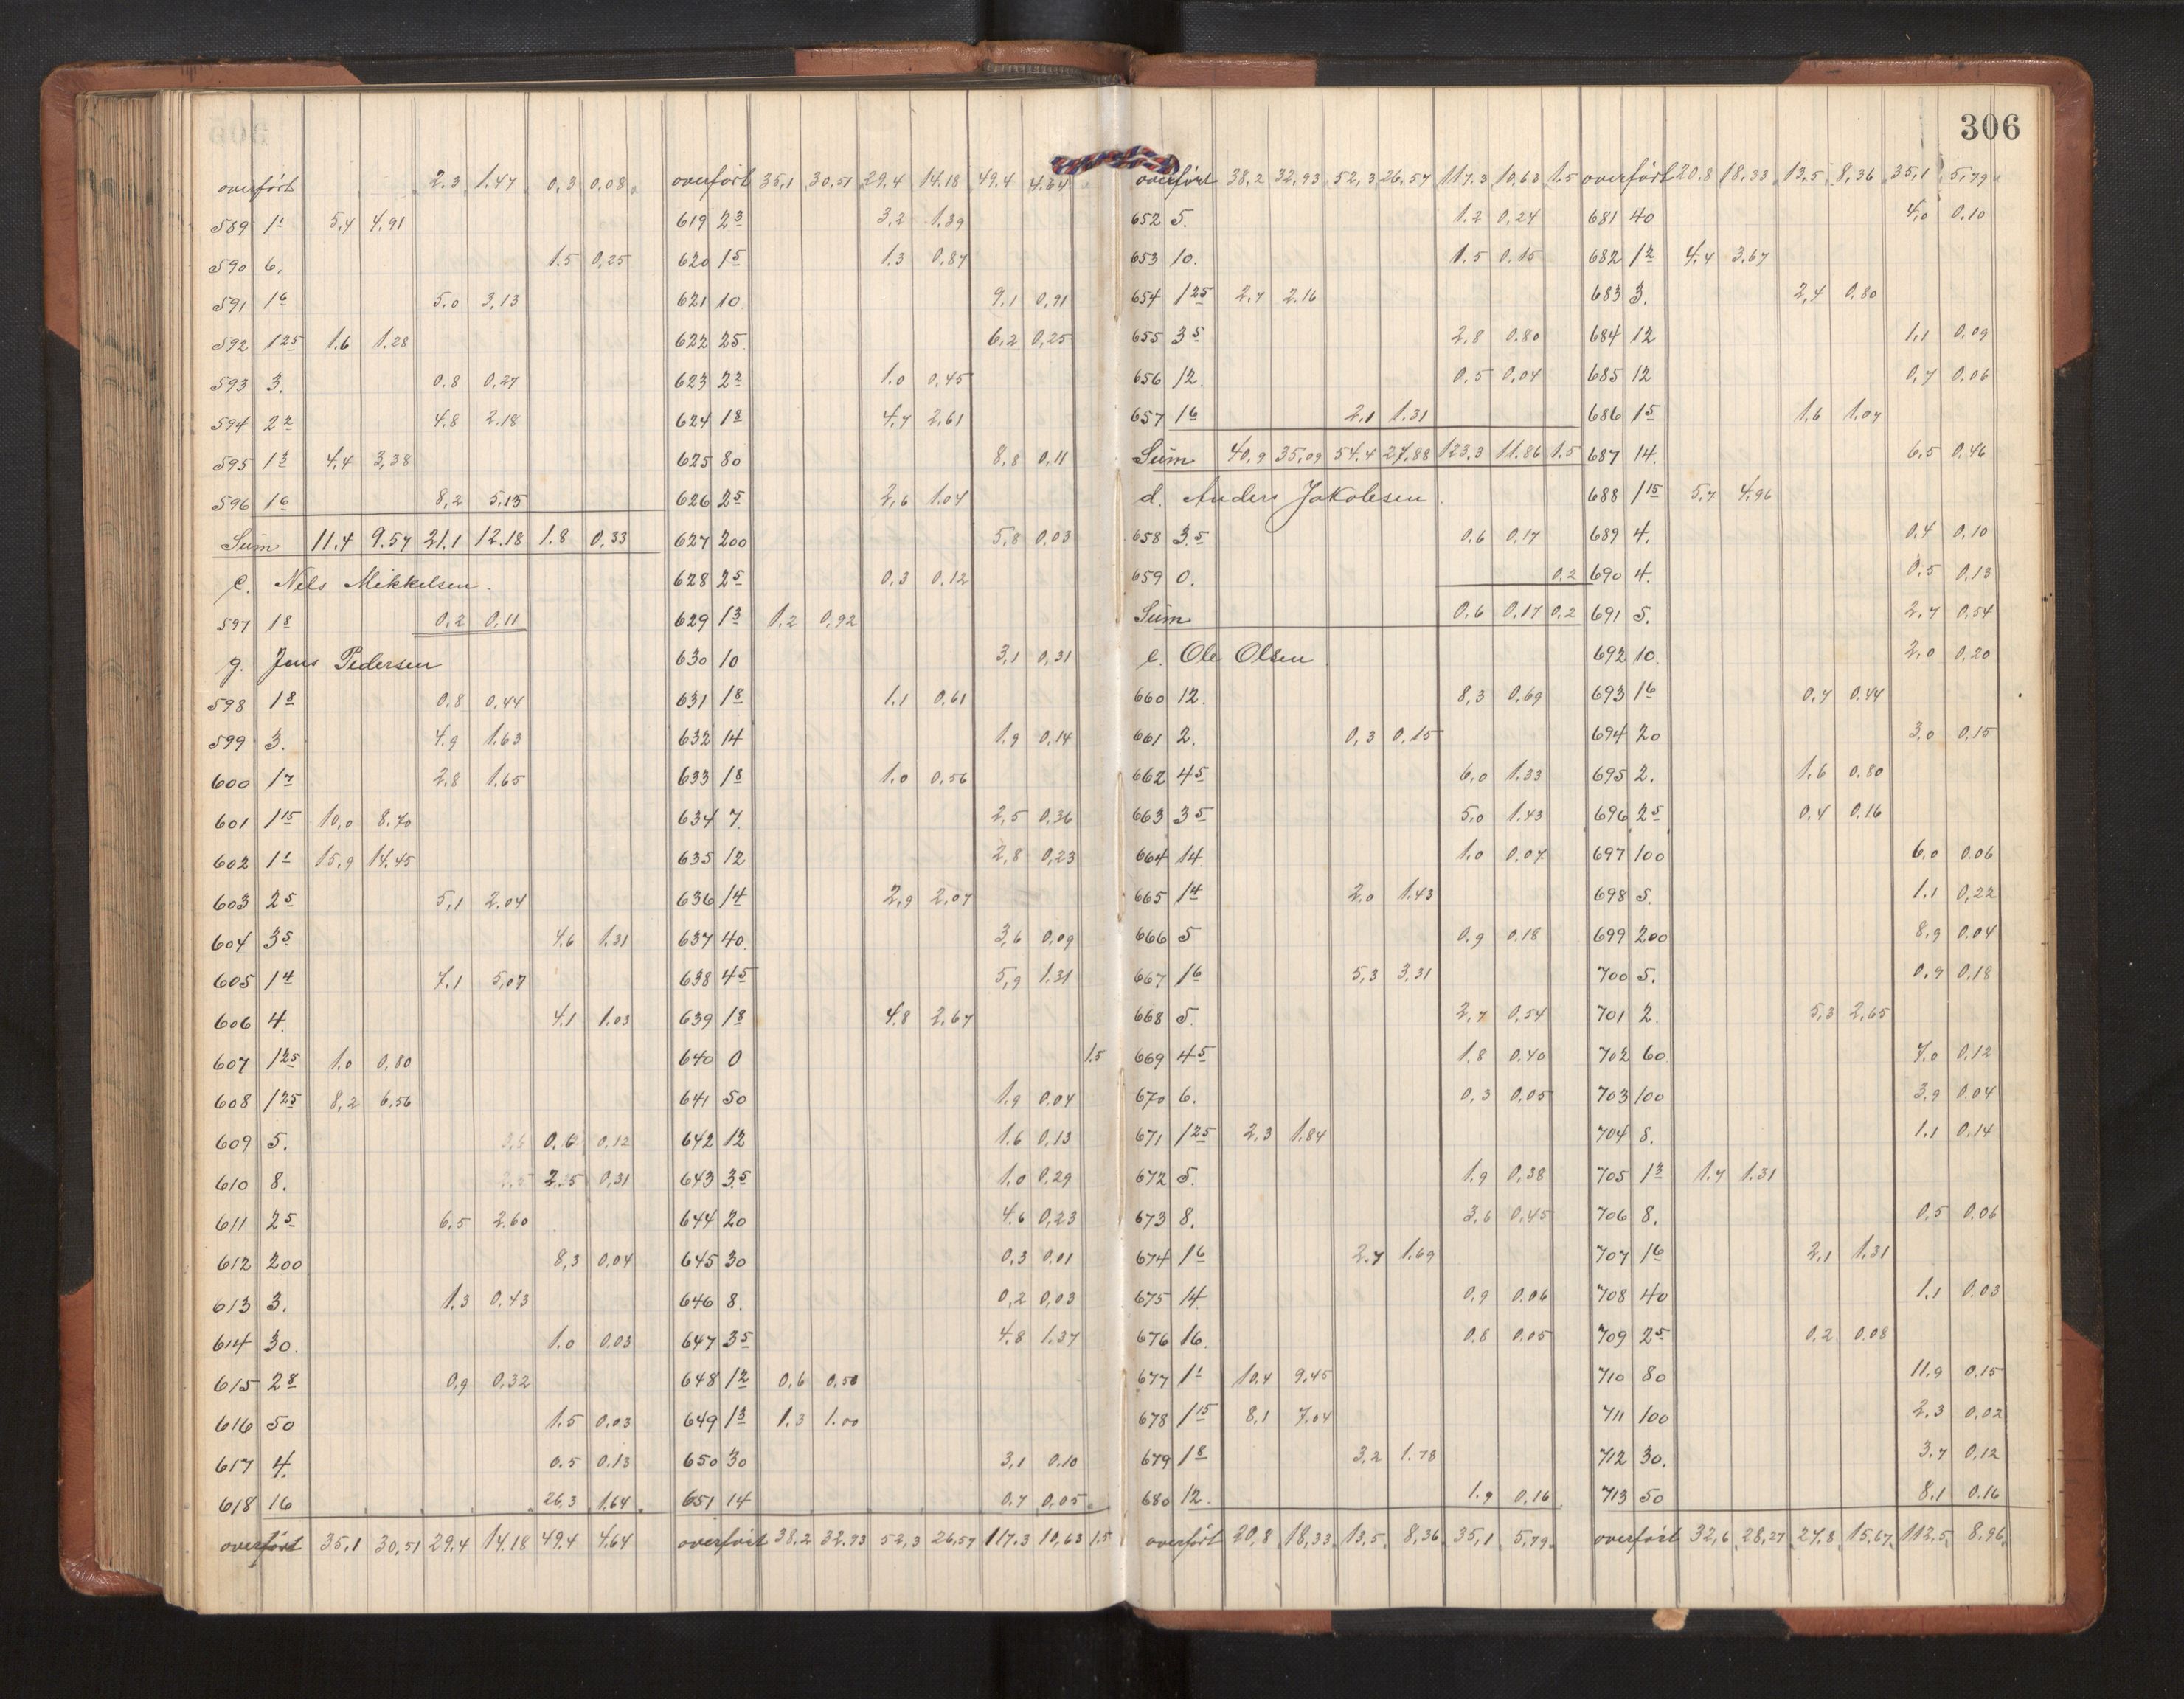 306
overført 2,3 1.47 0,3 0,08
589 1¹ 5,4 4,91
590 6. 1.5 0,25
591 1⁶ 5.0 3,13
592 1²⁵ 1.6 1.28
593 3. 0.8 0,27
594 2² 4.8 2,18
595 1³ 4,4 3,38
596 1⁶ 8,2 5,13
Sum 11.4 9.57 21.1 12.18 1.8 0,33
e. Nels Mikkelsen.
597 1⁸ 0,2 0,11
g. Jens Pedersen
598 1⁸ 0,8 0,44
599 3. 4.9 1.63
600 1⁷ 2,8 1.65
601 1¹⁵ 10,0 8.70
602 1¹ 15,9 14.45
603 2⁵ 5,1 2.04
604 3⁵ 4,6 1.31
605 1⁴ 7,1 5,07
606 4. 4,1 1.03
607 1²⁵ 1.0 0,80
608 1²⁵ 8,2 6,56
609 5. 0.6 0,12
610 8. 2.5 0,31
611 2⁵ 6,5 2.60
612 200 8,3 0,04
613 3. 1.3 0,43
614 30. 1.0 0.03
615 2⁸ 0,9 0,32
616 50 1.5 0,03
617 4. 0.5 0,13
618 16 26,3 1,64
overført 35,1 30,51 29,4 14.18 49,4 4.64
overført 35,1 30,51 29,4 14.18 49,4 4.64
619 2³ 3,2 1.39
620 1⁵ 1.3 0,87
621 10. 9,1 0,91
622 25. 6,2 0,25
623 2² 1.0 0,45
624 1⁸ 4,7 2,61
625 80 8,8 0,11
626 2⁵ 2,6 1.04
627 200 5,8 0,03
628 2⁵ 0,3 0,12
629 1³ 1,2 0,92
630 10 3,1 0,31
631 1⁸ 1.1 0,61
632 14 1.9 0,14
633 1⁸ 1.0 0,56
634 7. 2,5 0,36
635 12 2,8 0,23
636 1⁴ 2,9 2,07
637 40. 3,6 0,09
638 4⁵ 5,9 1.31
639 1⁸ 4.8 2,67
640 0 1.5
641 50 1.9 0.04
642 12 1.6 0,13
643 3.⁵ 1.0 0,29
644 20 4.6 0,23
645 30 0,3 0.01
646 8. 0,2 0,03
647 3⁵ 4.8 1.37
648 1² 0,6 0,50
649 1³ 1.3 1.00
650 30 3,1 0.10
651 14 0.7 0,05
overført 38,2 32,93 52,3 26,57 117.3 10,63 1.5
overført 38,2 32,93 52,3 26,57 117,3 10,63 1.5
652 5. 1.2 0,24
653 10. 1.5 0,15
654 1²⁵ 2,7 2.16
655 3⁵ 2,8 0.80
656 12. 0,5 0,04
657 1⁶ 2,1 1.31
Sum 40,9 35,09 54.4 27,88 123.3 11.86 1.5
d. Anders Jakobsen.
658 3.⁵ 0,6 0,17
659 0. 0,2
Sum 0,6 0,17 0,2
e. Ole Olsen
660 12. 8,3 0,69
661 2. 0,3 0,15
662 4⁵ 6,0 1.33
663 3⁵ 5,0 1.43
664 14. 1.0 0,07
665 1⁴ 2.0 1.43
666 5 0,9 0.18
667 1⁶ 5,3 3,31
668 5. 2,7 0,54
669 4⁵ 1.8 0.40
670 6. 0,3 0.05
671 1²⁵ 2,3 1.84
672 5. 1.9 0,38
673 8. 3,6 0,45
674 1⁶ 2.7 1.69
675 14 0,9 0.06
676 16. 0.8 0.05
677 1¹ 10,4 9,45
678 1¹⁵ 8,1 7.04
679 1⁸ 3,2 1.78
680 12. 1.9 0,16
overført 20,8 18,33 13,5 8,36 35,1 5,79
overført 20,8 18,33 13,5 8,36 35,1 5,79
681 40 4,0 0,10
682 1² 4,4 3,67
683 3. 2,4 0,80
684 12 1,1 0,09
685 12 0,7 0,06
686 1⁵ 1.6 1.07
687 14. 6,5 0,46
688 1¹⁵ 5,7 4,96
689 4. 0,4 0,10
690 4. 0,5 0,13
691 5. 2,7 0,54
692 10. 2,0 0,20
693 1⁶ 0,7 0,44
694 20 3,0 0,15
695 2. 1.6 0.80
696 2⁵ 0,4 0,16
697 100 6,0 0.06
698 5. 1.1 0,22
699 200 8,9 0.04
700 5. 0,9 0,18
701 2. 5,3 2,65
702 60. 7.0 0,12
703 100 3,9 0.04
704 8. 1.1 0,14
705 1³ 1.7 1.31
706 8. 0,5 0,06
707 1⁶ 2,1 1.31
708 40 1.1 0.03
709 2⁵ 0,2 0.08
710 80 11.9 0,15
711 100 2,3 0,02
712 30. 3,7 0,12
713 50 8,1 0.16
overført 32,6 28,27 27,8 15,67 112,5 8.96